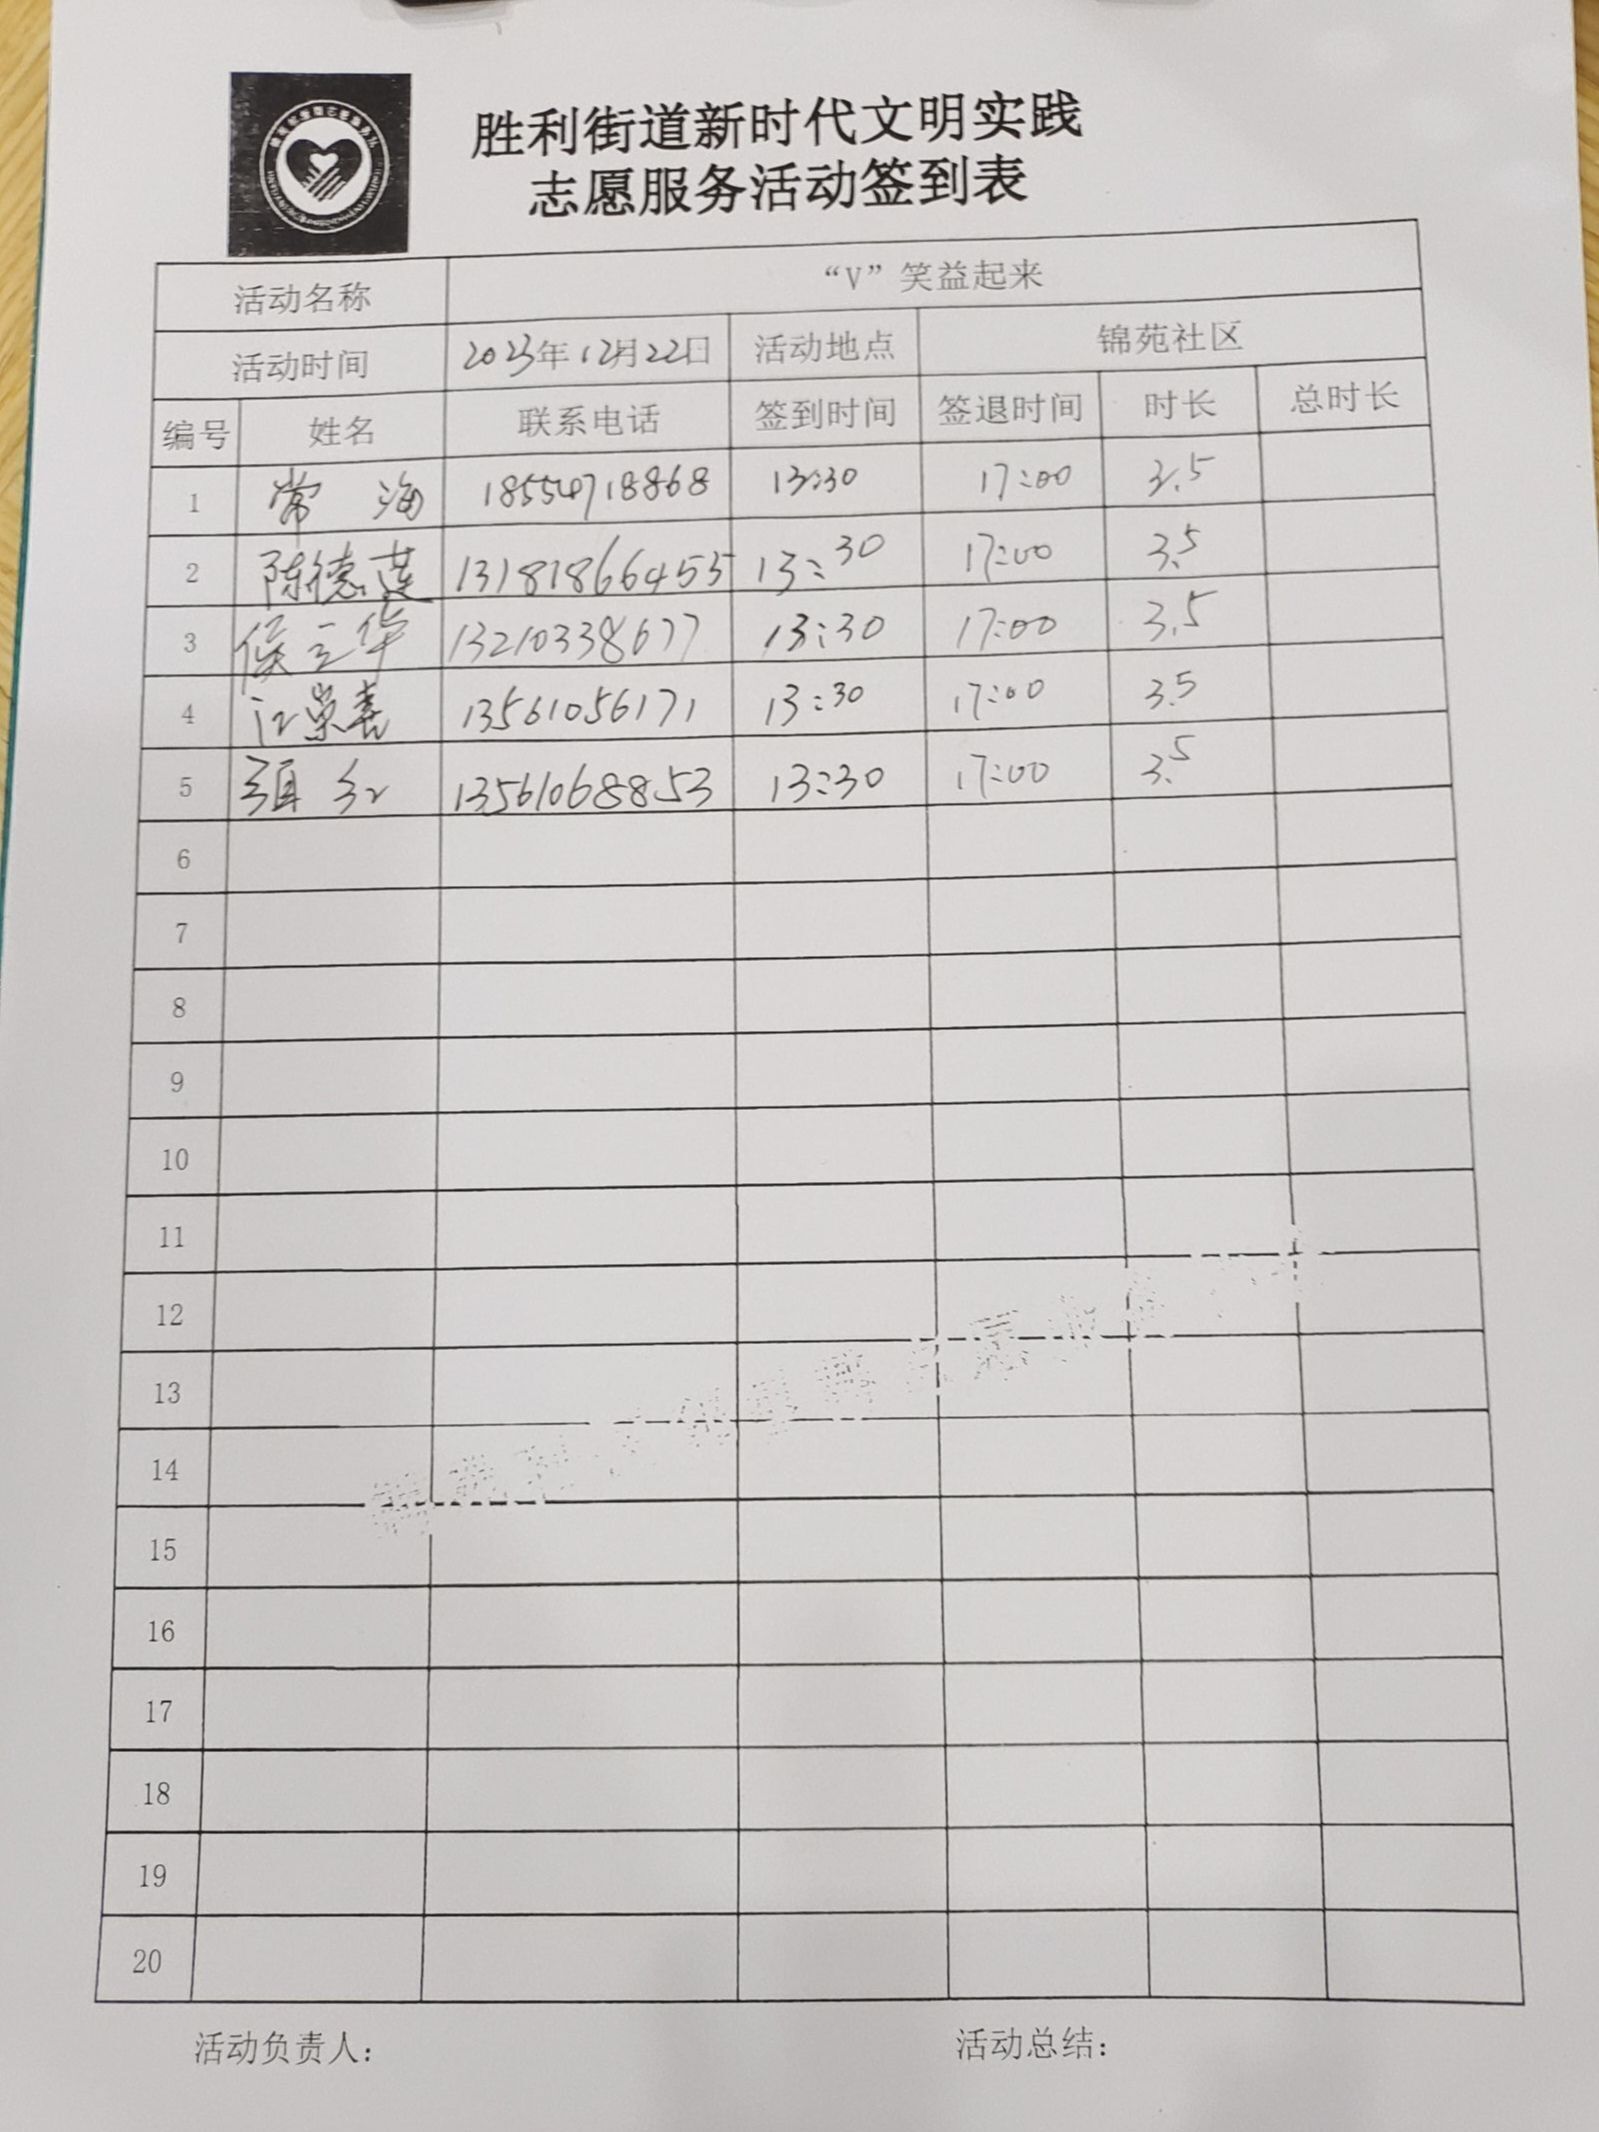 胜利街道新时代文明实践
志愿服务活动签到表
活动名称 “V”笑益起来
活动时间 2023年12月22日 活动地点 锦苑社区
编号 姓名 联系电话 签到时间 签退时间 时长 总时长
1 常海 18554718868 13:30 17:00 3.5
2 陈德莲 13181866453 13:30 17:00 3.5
3 侯立华 13210338677 13:30 17:00 3.5
4 江崇喜 13561056171 13:30 17:00 3.5
5 项红 13561068853 13:30 17:00 3.5
6
7
8
9
10
11
12
13
14
15
16
17
18
19
20
活动负责人： 活动总结：